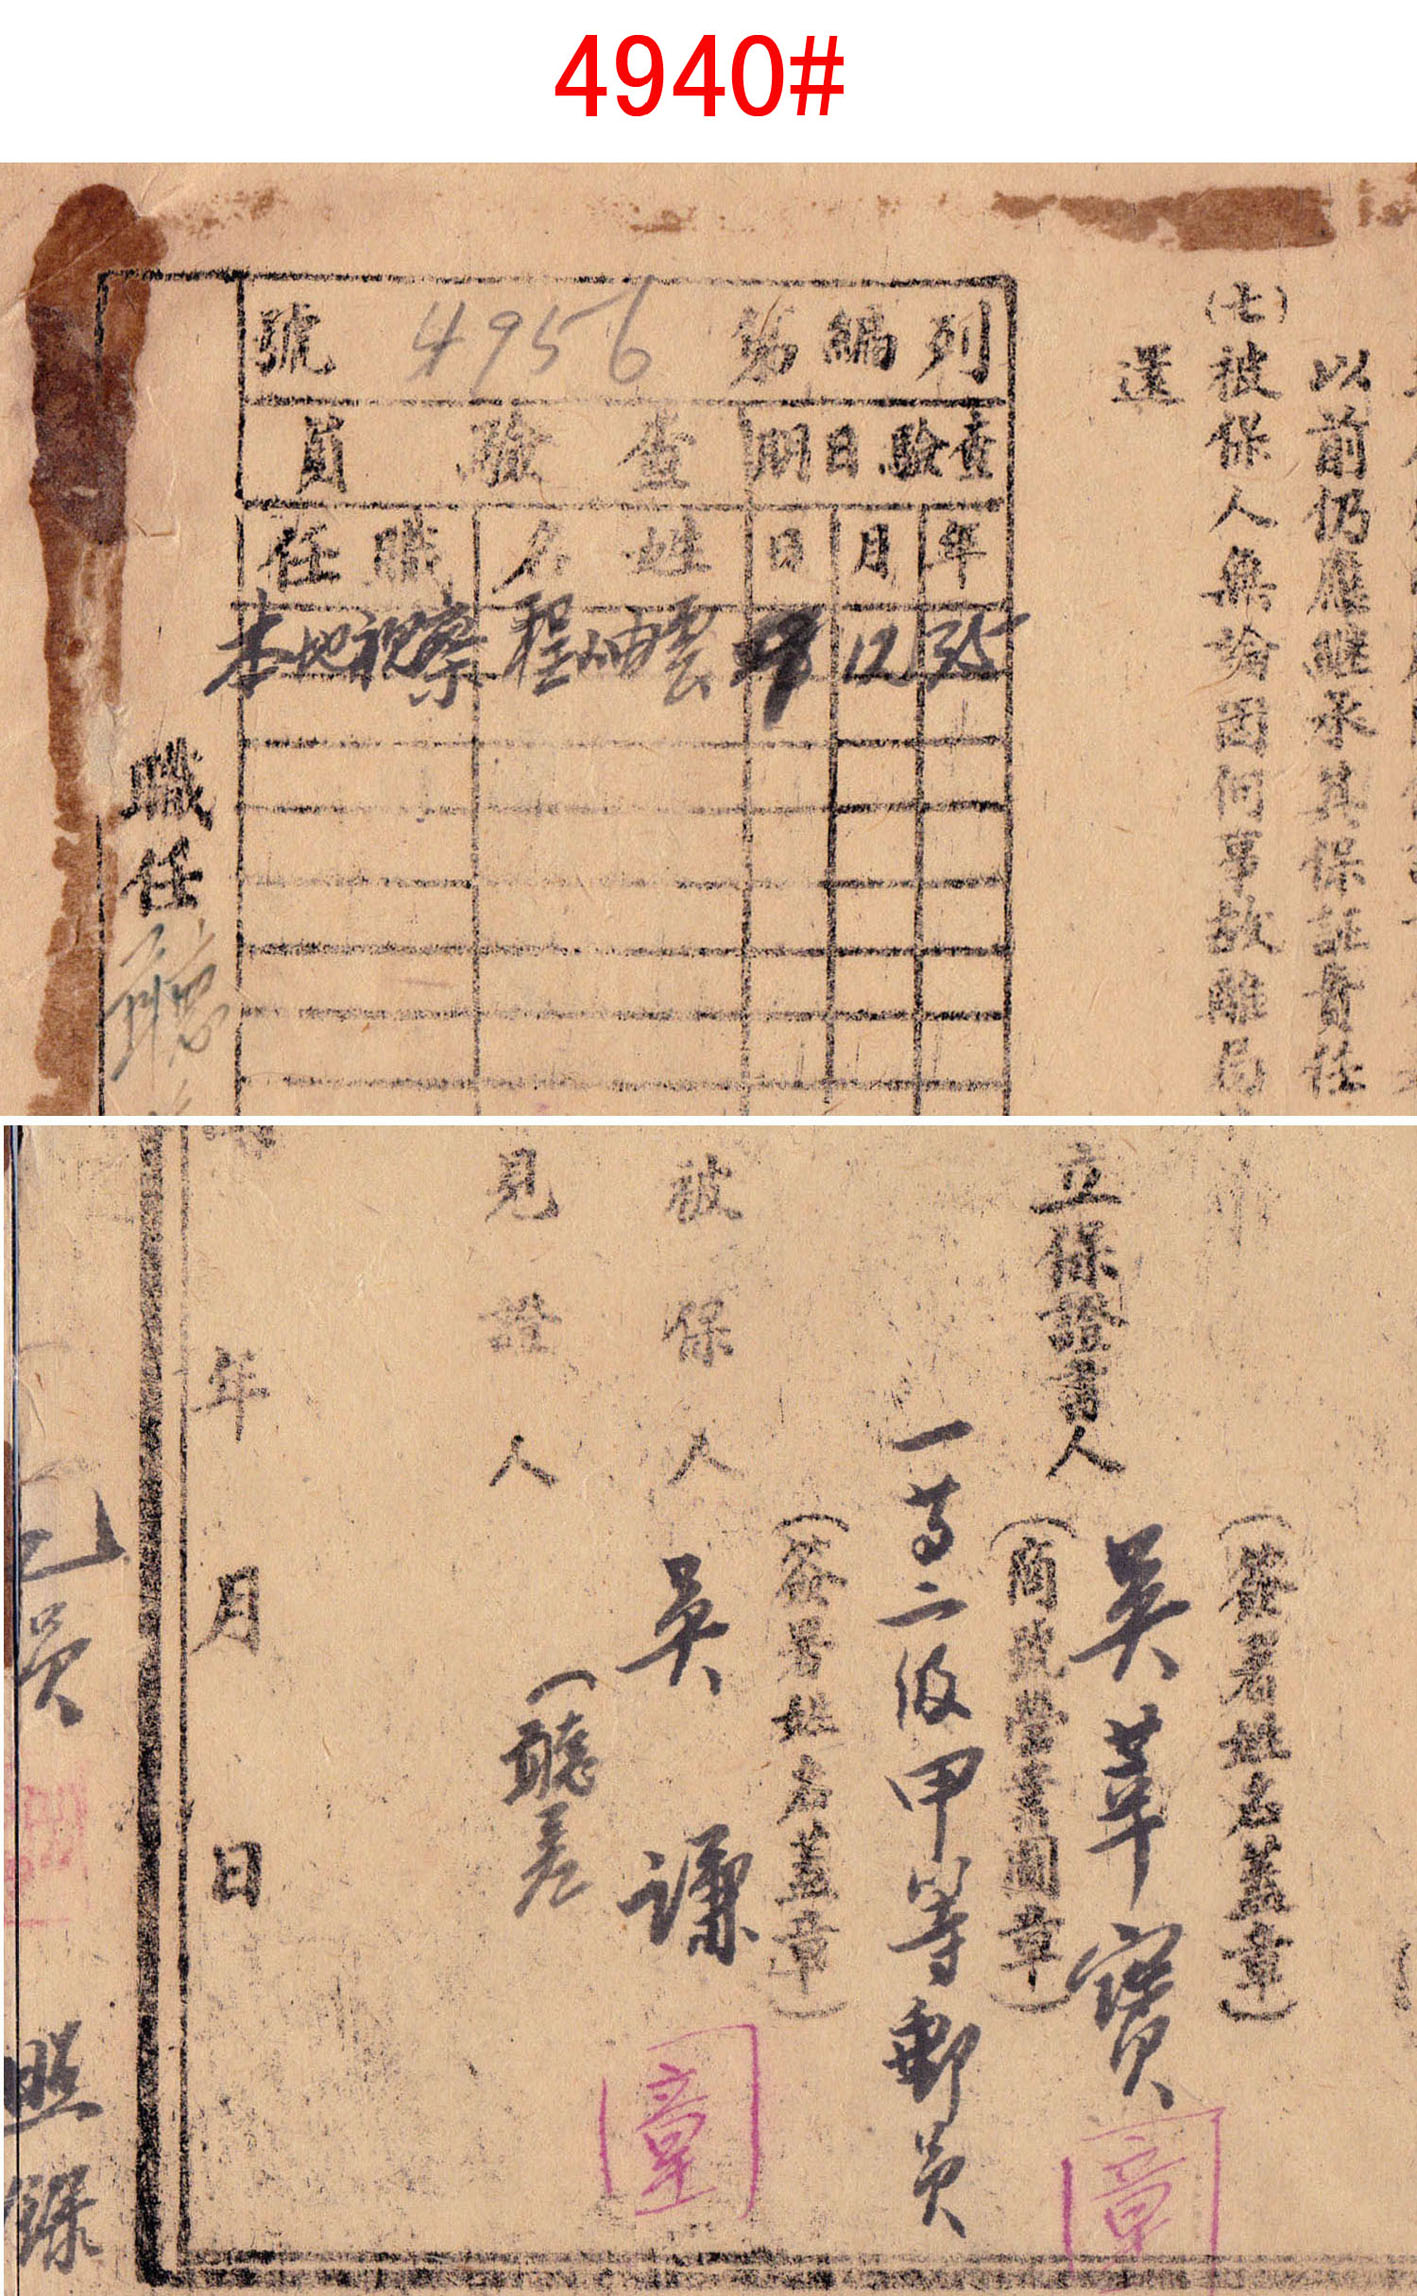 4940#
以前仍應継承其保証責任
(七)被保人無論因何事故離局
還
列編第 4956 號
查驗日期
查驗員
年 月 日 姓名 職任
35 12 9 程岫雲 本地視察
職任
立保證書人
(簽署姓名蓋章)
吳華寶
章
(商號營業圖章)
一等二級甲等郵員
(簽署姓名蓋章)
被保人
吳謙
章
見證人
(聽差
年月日
員
照錄